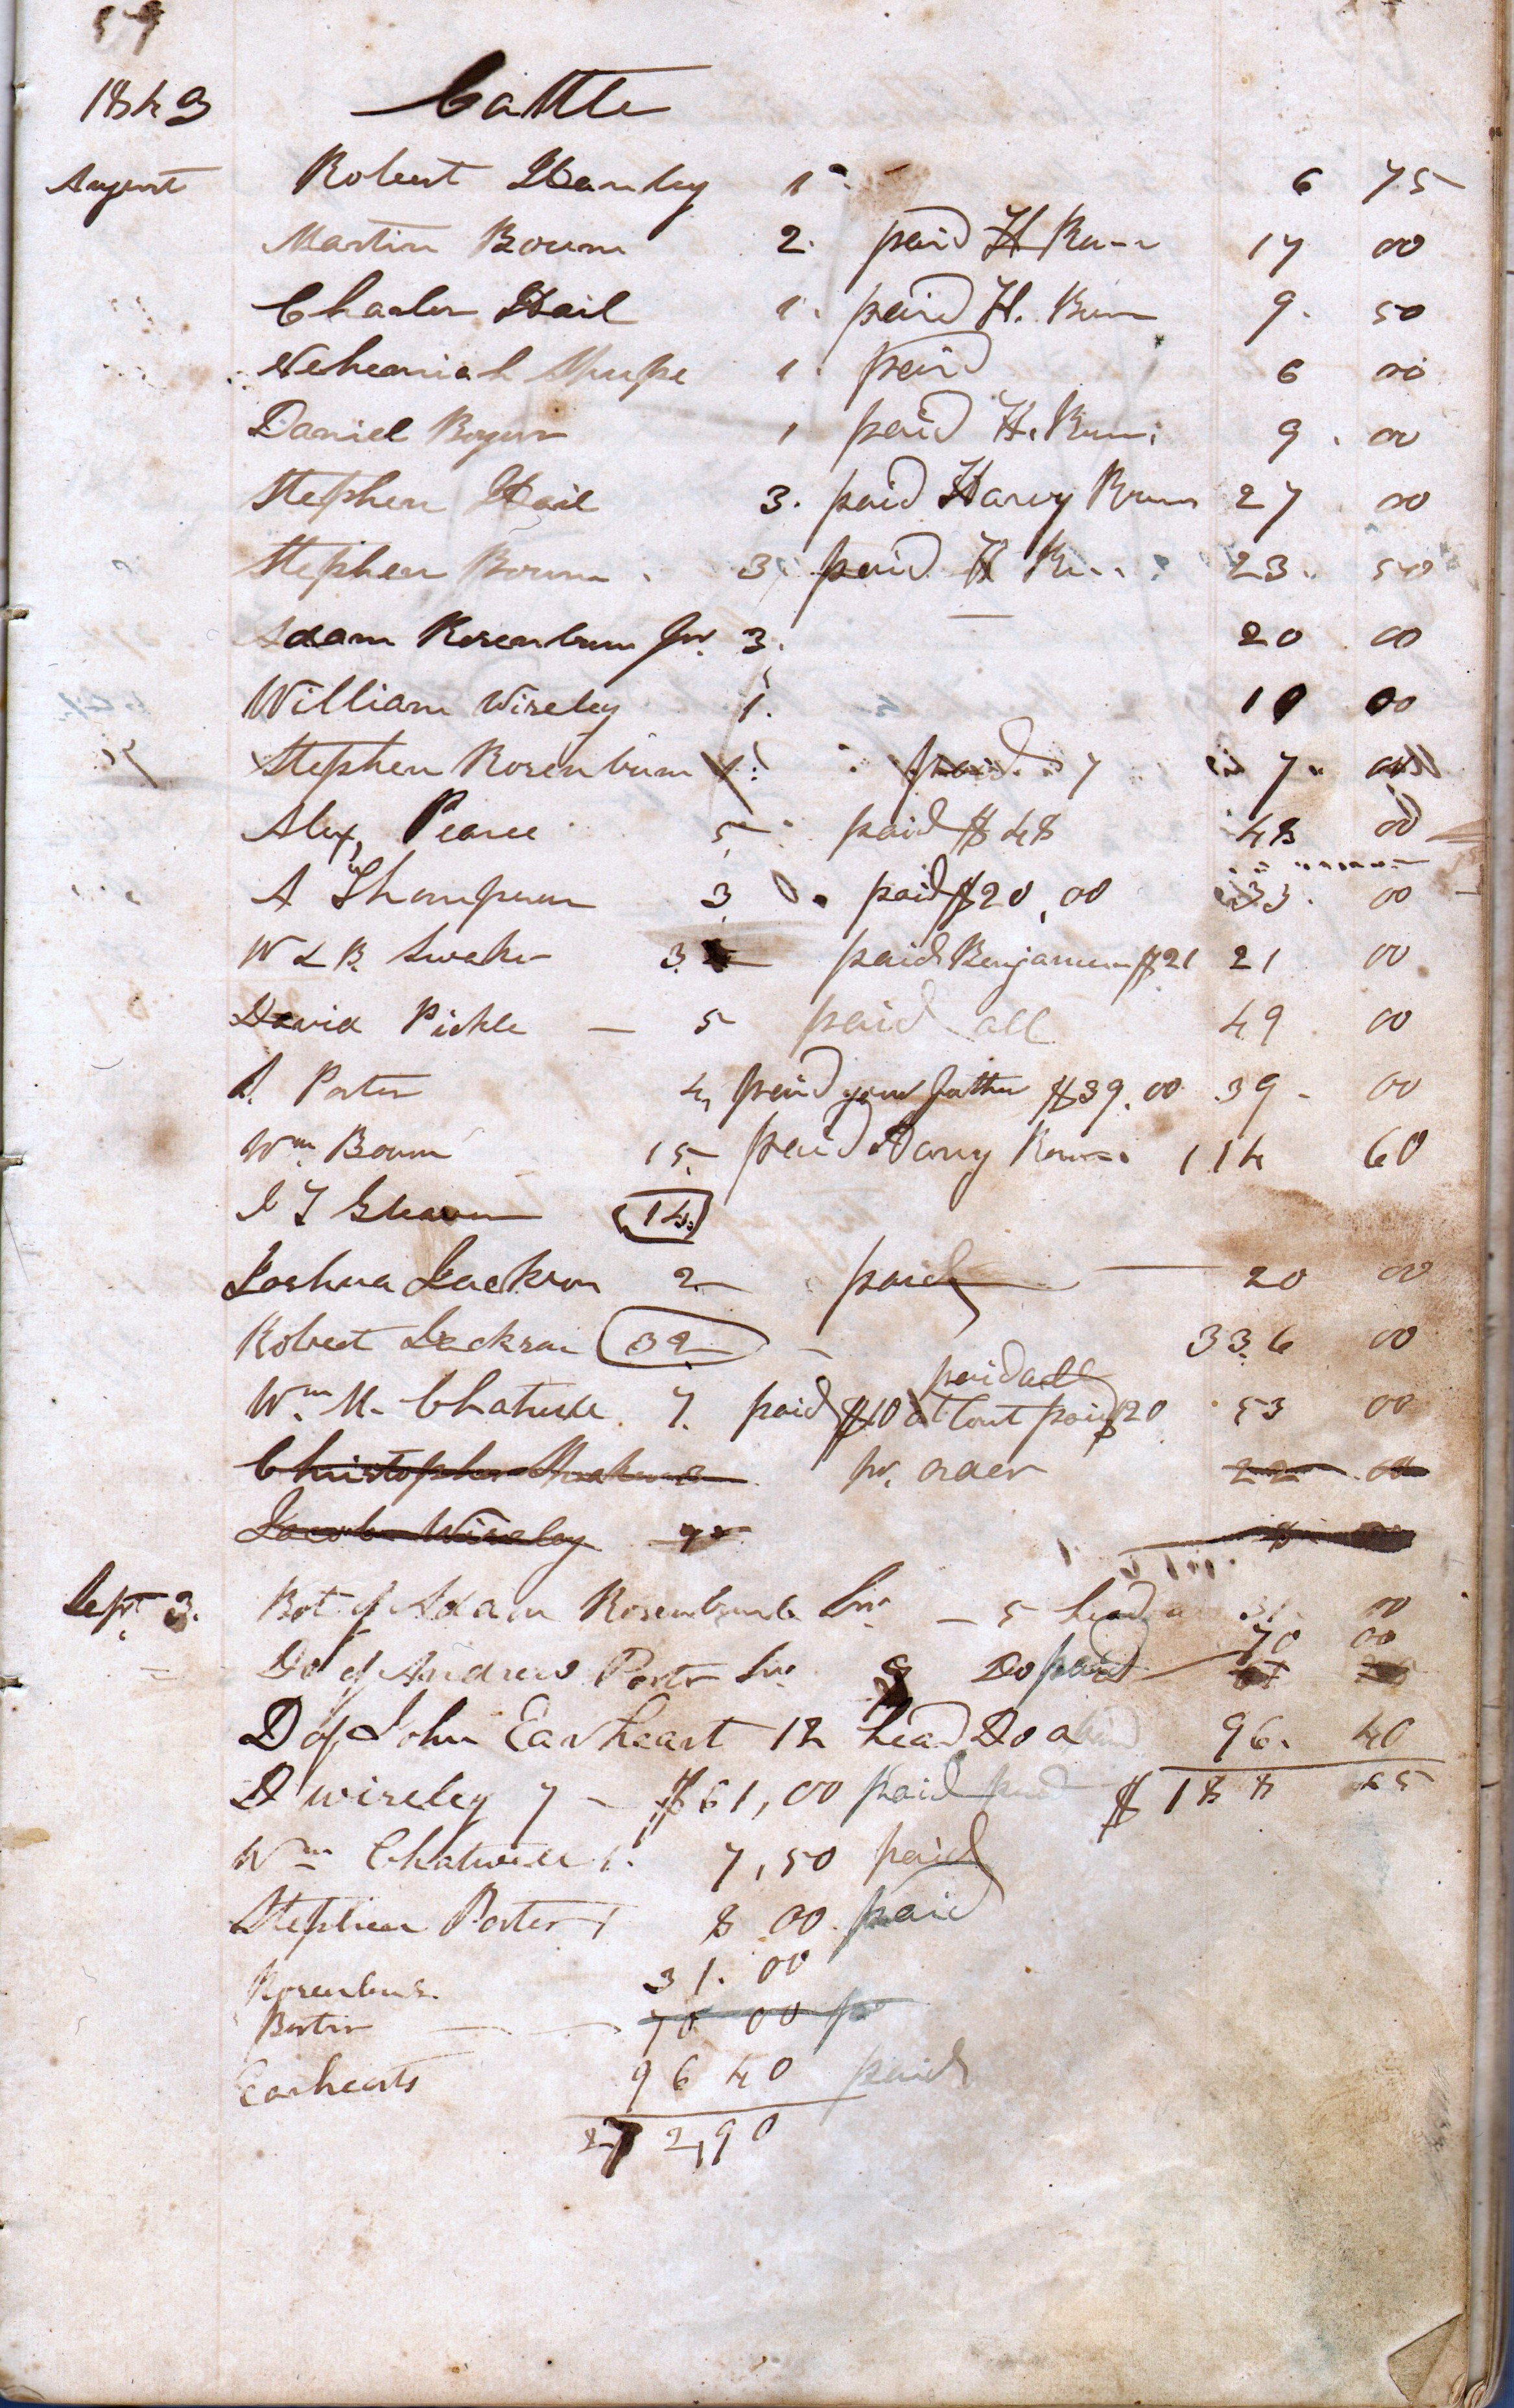 59
1843 Cattle
August Robert Hanley 1 6 75
Martin Bourn 2. paid H 17 00
Charles Hail 1. paid H. 9. 50
Nehemiah Shupe 1. paid 6 00
Daniel 1 paid H. 9. 00
Stephen Hail 3. paid Harvy 27 00
Stephen Bourn 3 paid H 23. 50
Adam Rosenbum Jnr. 3. 20 00
William Wireley 1. 10 00
Stephen Rosenbum 1 paid 7 7. 00
Alex, Pearce 5 paid $48 48 00
A Thompson 3 paid $20,00 33. 00
W & B. 3 paid Benjamin $21 21 00
David Pickle — 5 paid all 49 00
Porter 4, paid your father $39.00 39 - 00
Wm. Bourn 15 paid 114 60
14.
Joshua Jackson 2 paid 20 00
Robert Jackson 32 336 00
paid all
Wm. M. Chatwell 7. paid $10 at Court paid $20 53 00
Christopher pr. order 22 00
Jacob Wireley
Sept 3. Bot of Adam Snr — 5 head 31. 00
70 00
Do of Andrew Porter Snr Do paid
D of John Earheart 12 head Do 96. 40
D wireley 7 - $61,00 paid $188 65
Wm Chatwell 1. 7,50 paid
Stephen Porter 1 8 00 paid
31. 00
Porter 70 00
Earhearts 96 40 paid
272,90